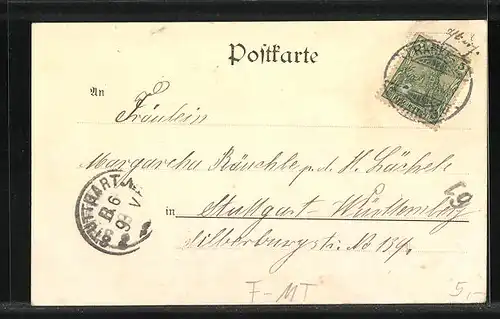 Postkarte
An
Fräulein
Margaretha Räuchle p. d. H. Lächele
in Stuttgart-Württemberg
Silberburgstr. No 139.
STUTTGART
F-MT
5,-